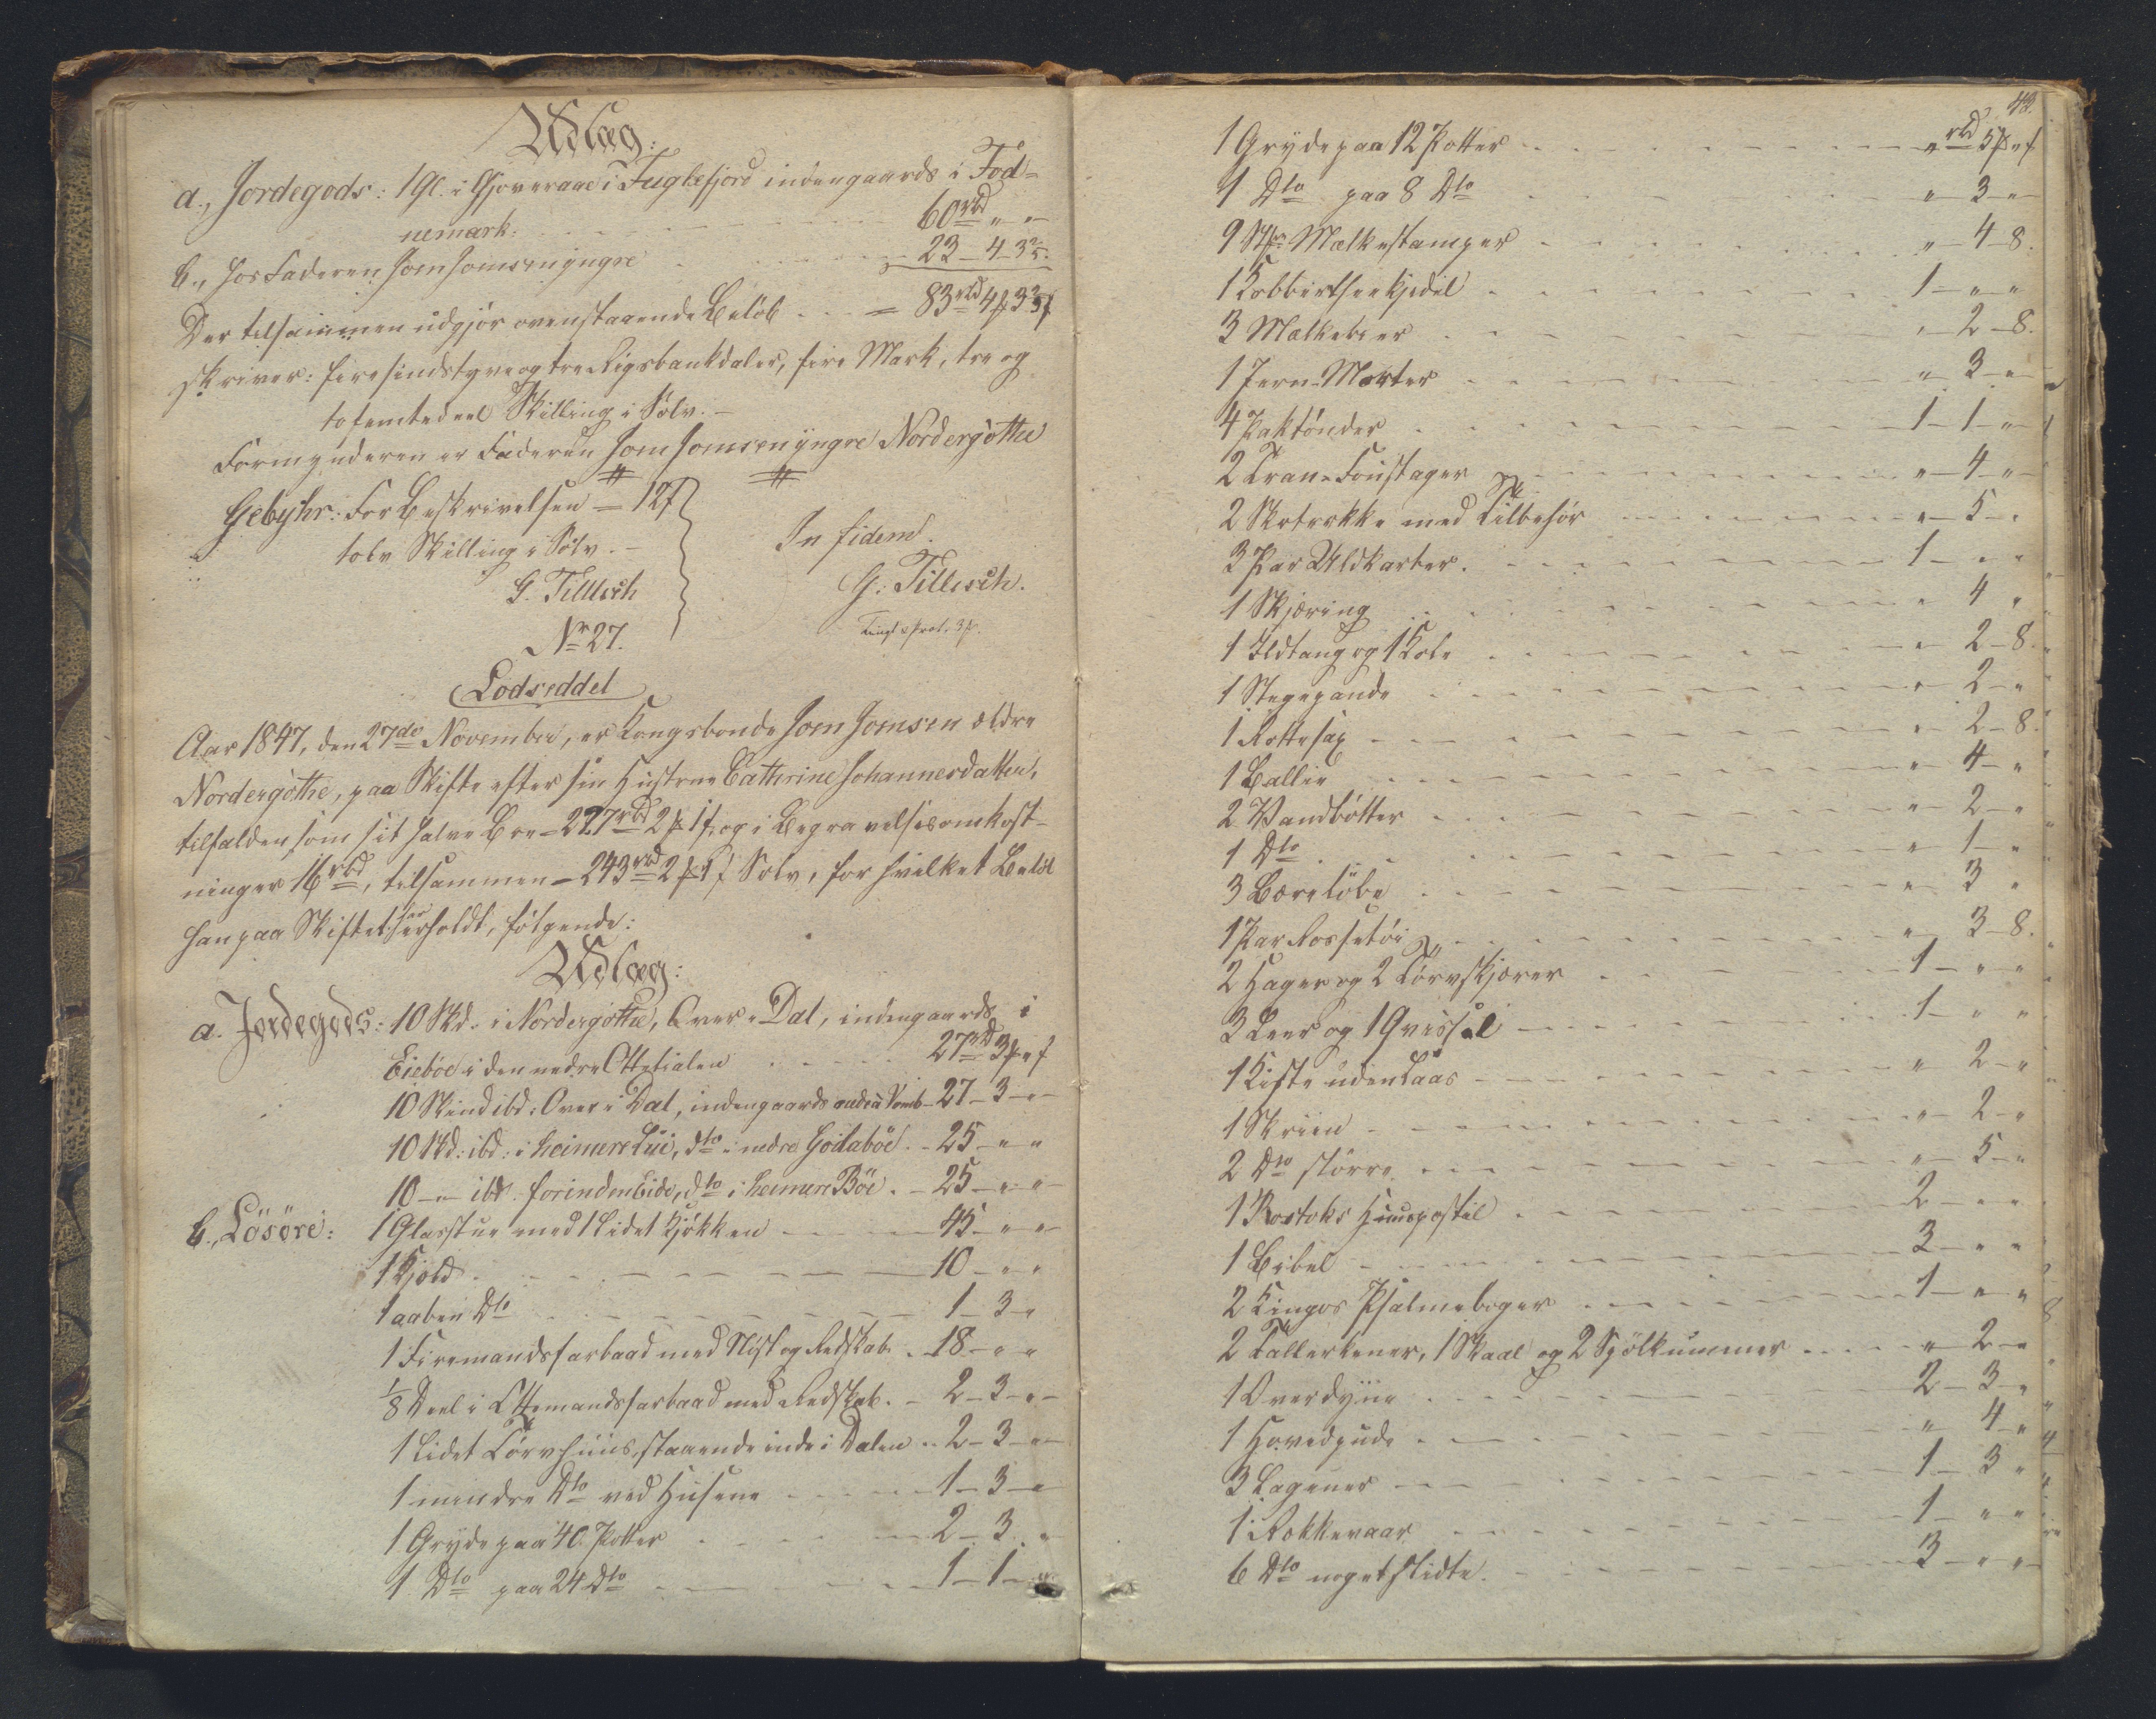 Udlæg:
a., Jordegods: 1 Gl. i Gjoveraae i Fuglefjord indengaards i Fod-
nemark. 60 rbd " "
b., hos Faderen Joen Joensen yngre 23 - 4 - 3 2/5.
Der tilsammen udgjør ovenstaaende Beløb = 83 rbd 4 ₻ 3 2/5 ß
skriver: firesindstyve og tre Rigsbankdaler, fire Mark, tre og
tofemtedeel Skilling i Sølv. -
Formynderen er Faderen Joen Joensen yngre Nordergøthe
Gebyhr: For Beskrivelsen = 12 ß
tolv Skilling i Sølv. -
G. Tillisch
In fidem.
G: Tillisch.
Nr 27.
Lodseddel
Aar 1847, den 27de November, er Kongsbonde Joen Joensen ældre
Nordergøthe, paa Skifte efter sin Hustrue Cathrine Johannesdatter,
tilfalden som sit halve Boe = 227 rbd 2 ₻ 1 ß, og i Begravelsesomkost-
ninger 16 rbd, tilsammen = 243 rbd 2 ₻ 1 ß Sølv, for hvilket Beløb
han paa Skiftet har erholdt, følgende:
Udlæg:
a. Jordegods: 10 Skd. i Nordergøthe, Over i Dal, indengaards i
Eiebøe i den nedre Ottetialen 27 rbd 3 ₻ " ß
10 Skind ibd: Over i Dal, indengaards 27 - 3 - "
10 Skd: ibd: i heimere Lui, dto i nedre Goilabøe 25 - " "
10 - " - ibd. forinden Eide, dto i heimere Bøe. - 25 - " "
b., Løsøre: 1 Glasstue med 1 lidet Kjøkken 45 - " "
1 Hjold 10 - " "
1 aaben Dto 1 - 3 - "
1 Firemandsfarbaad med Nøst og Redskab. 18 - " "
1/8 Deel i Ottemandsfarbaad med Redskab. - 2 - 3 - "
1 lidet Tørvhuus, staaende inde i Dalen 2 - 3 - "
1 mindre Dto ved Husene 1 - 3 - "
1 Gryde paa 40 Potter 2 - 3 - "
1 Dto paa 24 Dto 1 - 1 - "
43.
1 Gryde paa 12 Potter " rbd 5 ₻ " ß
1 Dto paa 8 Dto " - 3 - "
9 Stkr Malkestamper " - 4 - 8.
1 Kobbertheekjedel 1 - " - "
3 Malkebøer " - 2 - 8.
1 Jern-Morter " - 3 - "
4 Saktønder 1 - 1 - "
2 Tran-Foustager " - 4 - "
2 Skotrokke med Tilbehør " - 5 - "
3 Par Uldkarter. 1 - " "
1 Skjæring " 4 "
1 Ildtang og 1 Kole " - 2 - 8.
1 Stegepande " - 2 - "
1 Rottesax " - 2 - 8.
1 Ballie " - 4 - "
2 Vandbøtter " - 2 - "
1 Dto " - 1 - "
3 Bæreløbe " - 3 "
1 Par Rossetøi " - 3 - 8.
2 Hager og 2 Tørvskjærer 1 - " "
3 Leer og 1 Qvissel 1 - " "
1 Kiste uden Laas " - 2 - "
1 Skriin " - 2 - "
2 Dto større " - 5 - "
1 Rostoks Huuspostil 2 - " "
1 Bibel 3 - " "
2 Kingos Psalmebøger 1 - " "
2 Tallerkener, 1 Skaal og 2 Spølkummer " - 2 - "
1 Overdyne 2 - 3 - "
1 Hovedpude " - 4 - "
3 Lagener 1 - 3 "
1 Rokkevaar 1 - " "
6 Dto noget slidte. 3 - " "